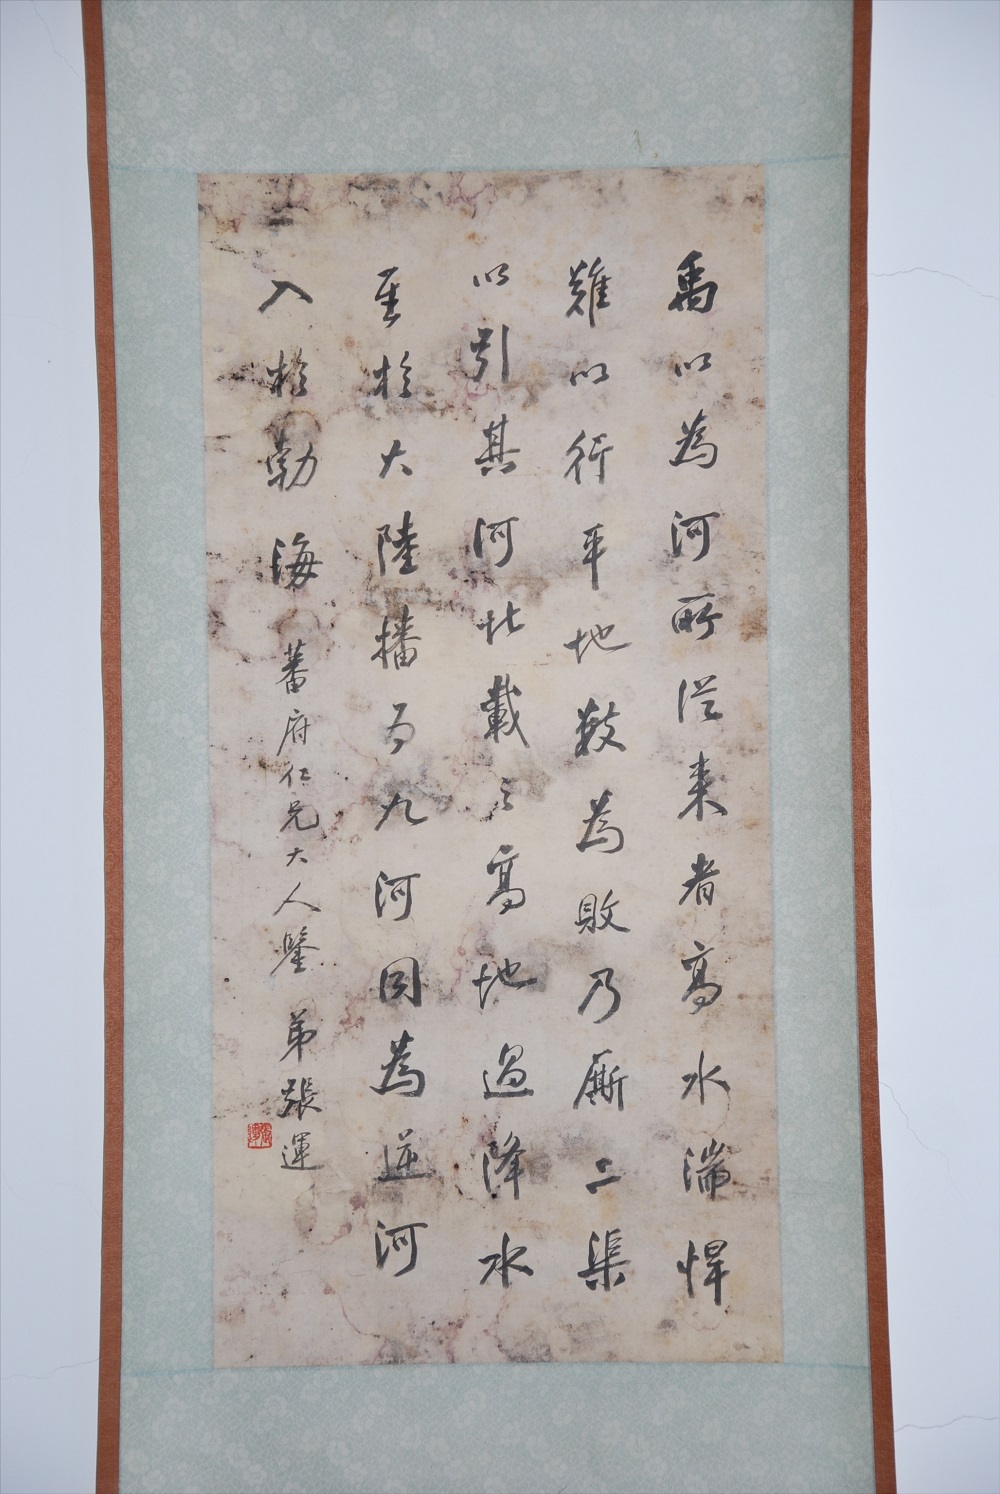 禹以為河所從来者高水湍悍
難以行平地數為敗乃厮二渠
以引其河北載之高地過降水
至於大陸播为九河同為逆河
入於勃海 蕃府仁兄大人鑒 弟張運